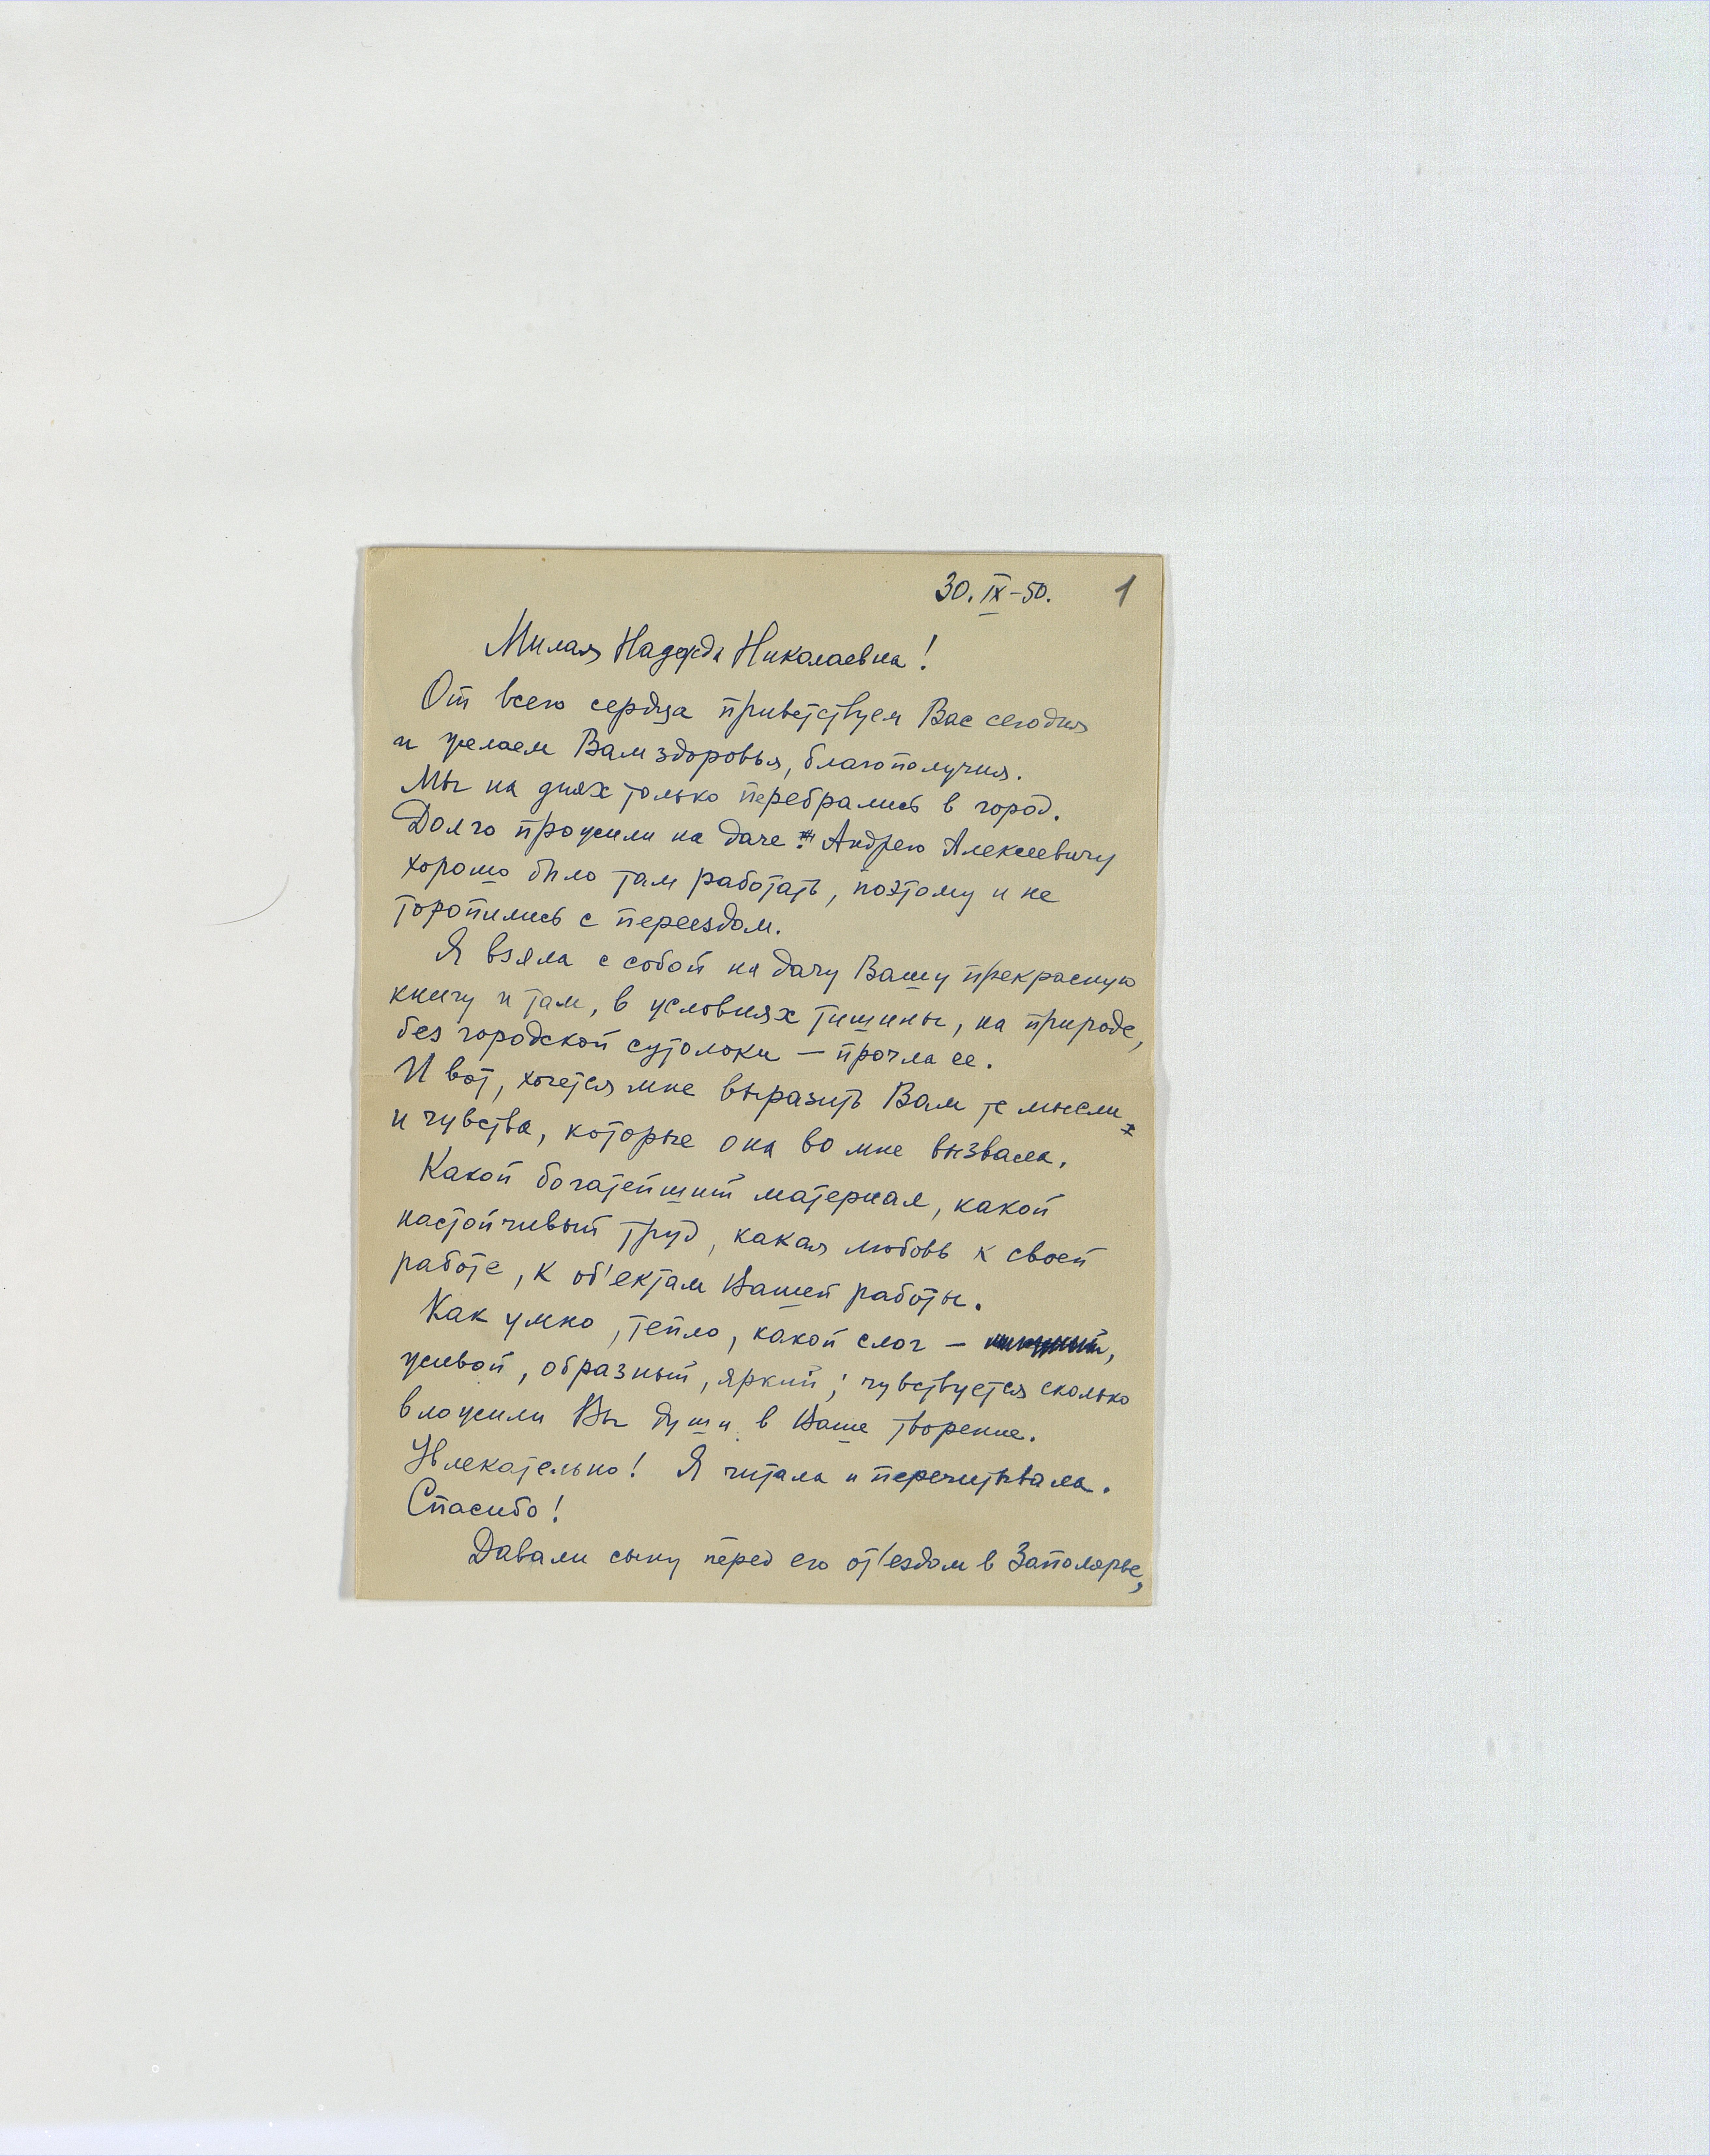 30.IX-50. 1
Милая Надежда Николаевна!
От всего сердца приветствуем Вас сегодня
и желаем Вам здоровья, благополучия.
Мы на днях только перебрались в город.
Долго прожили на даче. Андрею Алексеевичу
хорошо было там работать, поэтому и не
торопились с переездом.
Я взяла с собой на дачу Вашу прекрасную
книгу и там, в условиях тишины, на природе,
без городской сутолоки — прочла ее.
И вот, хочется мне выразить Вам те мысли
и чувства, которые она во мне вызвала.
Какой богатейший материал, какой
настойчивый труд, какая любовь к своей
работе, к об'ектам Вашей работы.
Как умно, тепло, какой слог —
живой, образный, яркий; чувствуется сколько
вложили Вы души в Ваше творение.
Увлекательно! Я читала и перечитывала.
Спасибо!
Давали сыну перед его от'ездом в Заполярье,